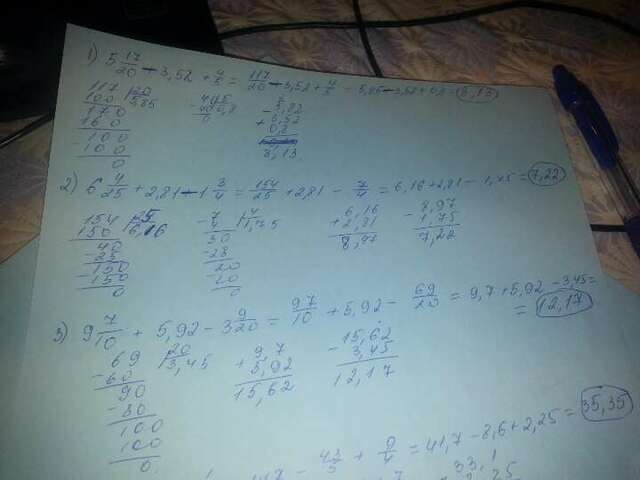 1) 5 17/20 - 3,52 + 4/5 = 117/20 - 3,52 + 4/5 = 5,85 - 3,52 + 0,8 = 3,13
117 20
100 5,85
170
160
100
- 100
0
0,8
3,13
2) 6 4/25 + 2,81 - 1 3/4 = 154/25 + 2,81 - 7/4 = 6,16 + 2,81 - 1,75 = 7,22
154 25
150 6,16
40
- 25
- 150
150
0
- 7 4
4 1,75
30
- 28
20
20
0
6,16
+ 2,81
8,97
- 8,97
1,75
7,22
3) 9 7/10 + 5,92 - 3 9/20 = 97/10 + 5,92 - 69/20 = 9,7 + 5,92 - 3,45 =
= 12,17
- 69 20
60 3,45
90
- 80
100
100
0
+ 9,7
5,92
15,62
- 15,62
3,45
12,17
- 43/5 + 9/4 = 41,7 - 8,6 + 2,25 = 35,35
33,1